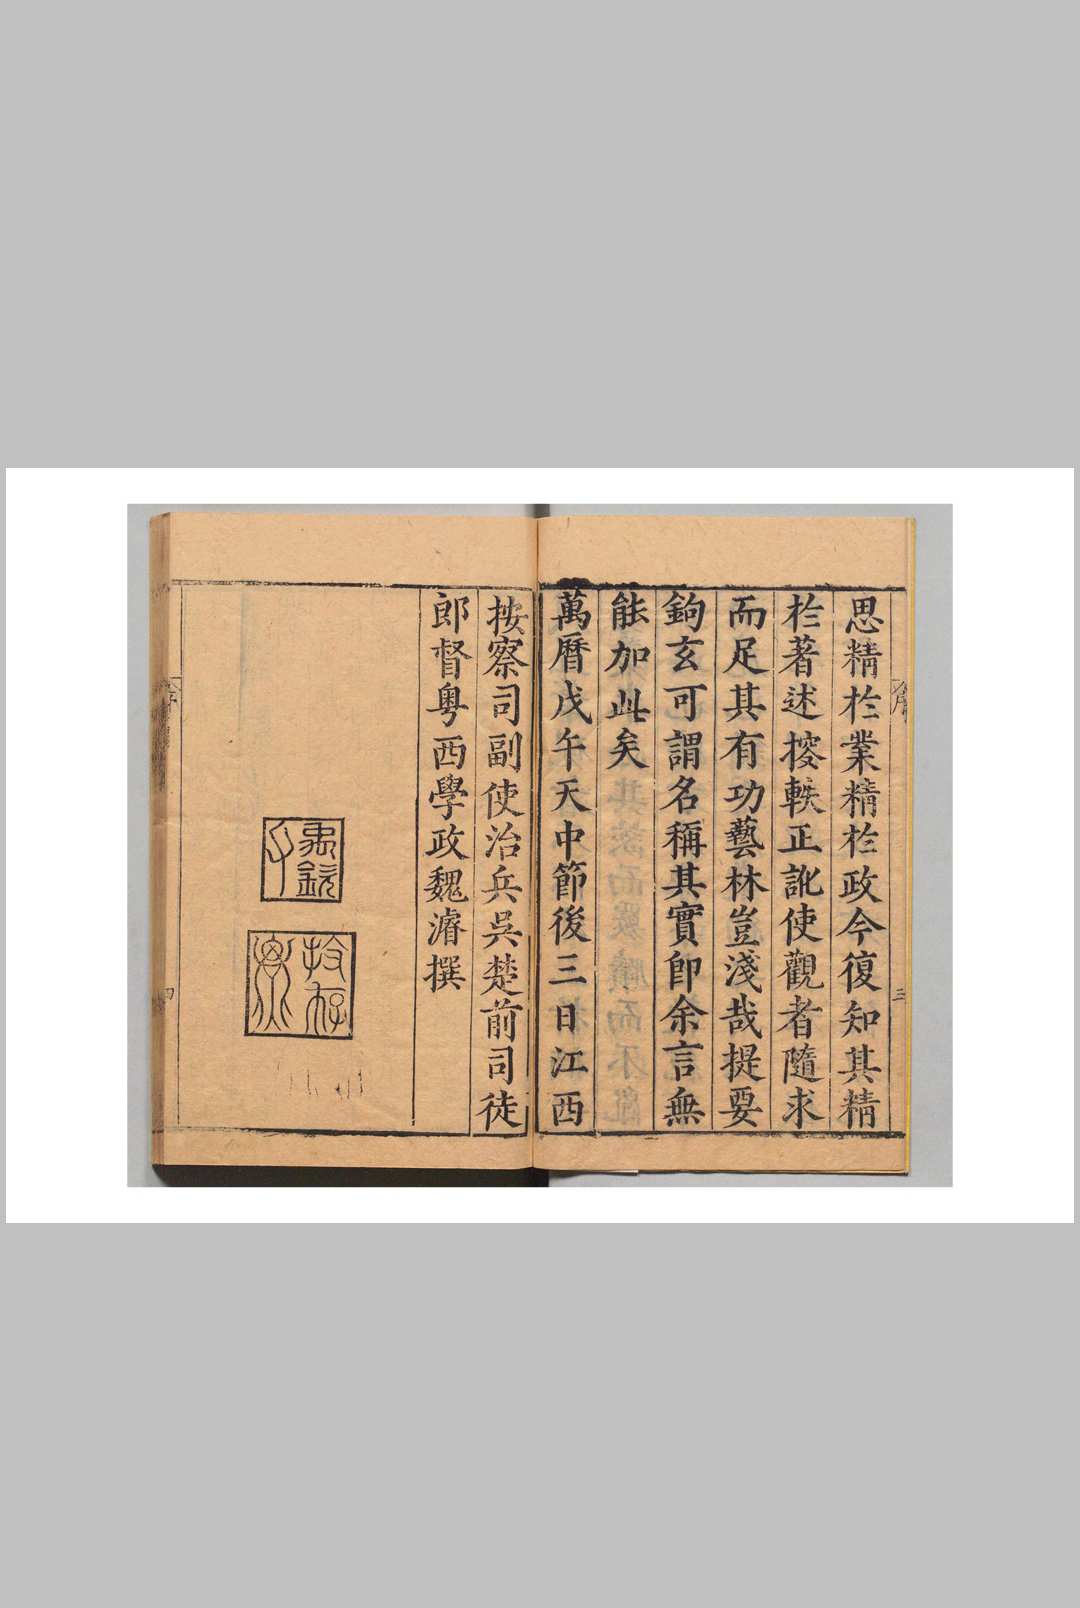 序 三
思精扵業精扵政今復知其精
扵著述搜軼正訛使觀者隨求
而足其有功藝林豈淺哉提要
鉤玄可謂名稱其實卽余言無
能加此矣
萬曆戊午天中節後三日江西
按察司副使治兵吳楚前司徒
郎督粤西學政魏濬撰
序 四